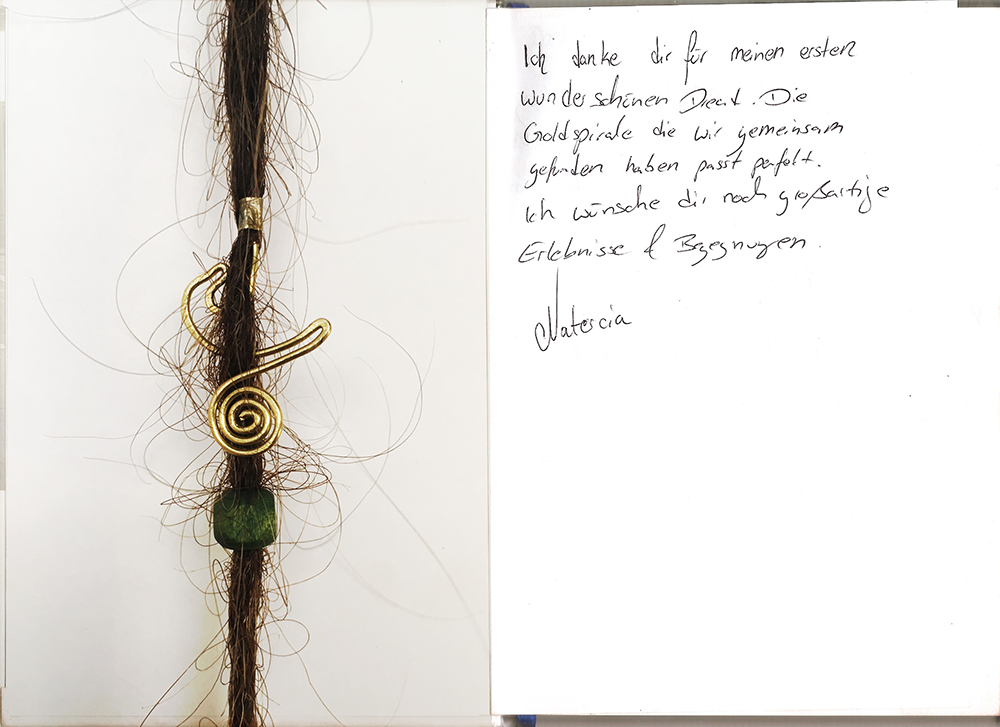 Ich danke dir für meinen ersten
wunderschönen Dread. Die
Goldspirale die wir gemeinsam
gefunden haben passt perfekt.
Ich wünsche dir noch großartige
Erlebnisse & Begegnungen.
Natercia